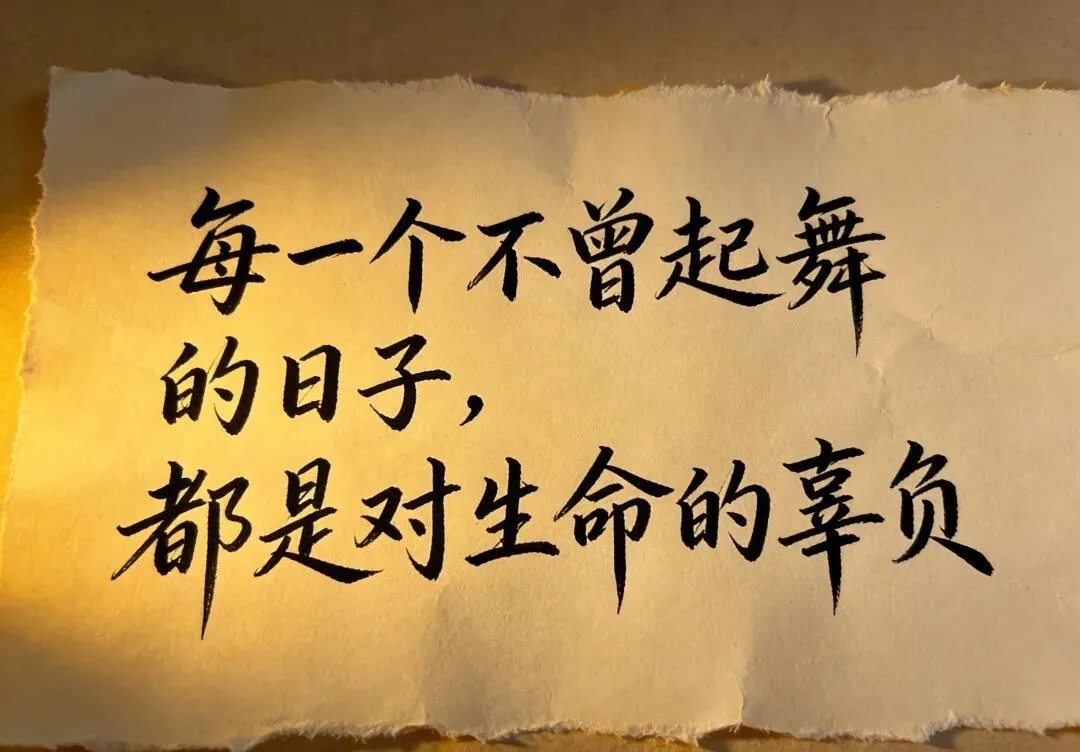 每一个不曾起舞
的日子，
都是对生命的辜负